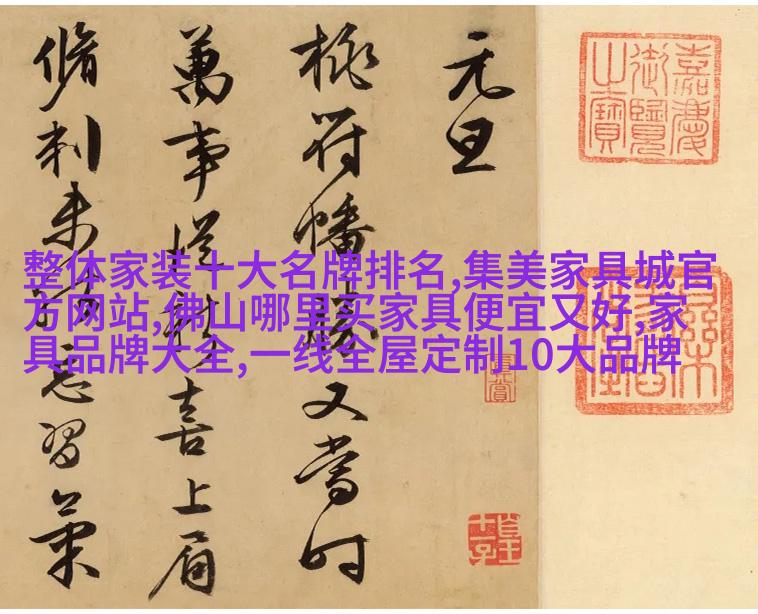 元旦
桃符幡勝又當時
萬事從喜上眉
脩刺未忘習氣
嘉慶御覽之寶
整体家装十大名牌排名,集美家具城官
方网站,佛山哪里买家具便宜又好,家
具品牌大全,一线全屋定制10大品牌